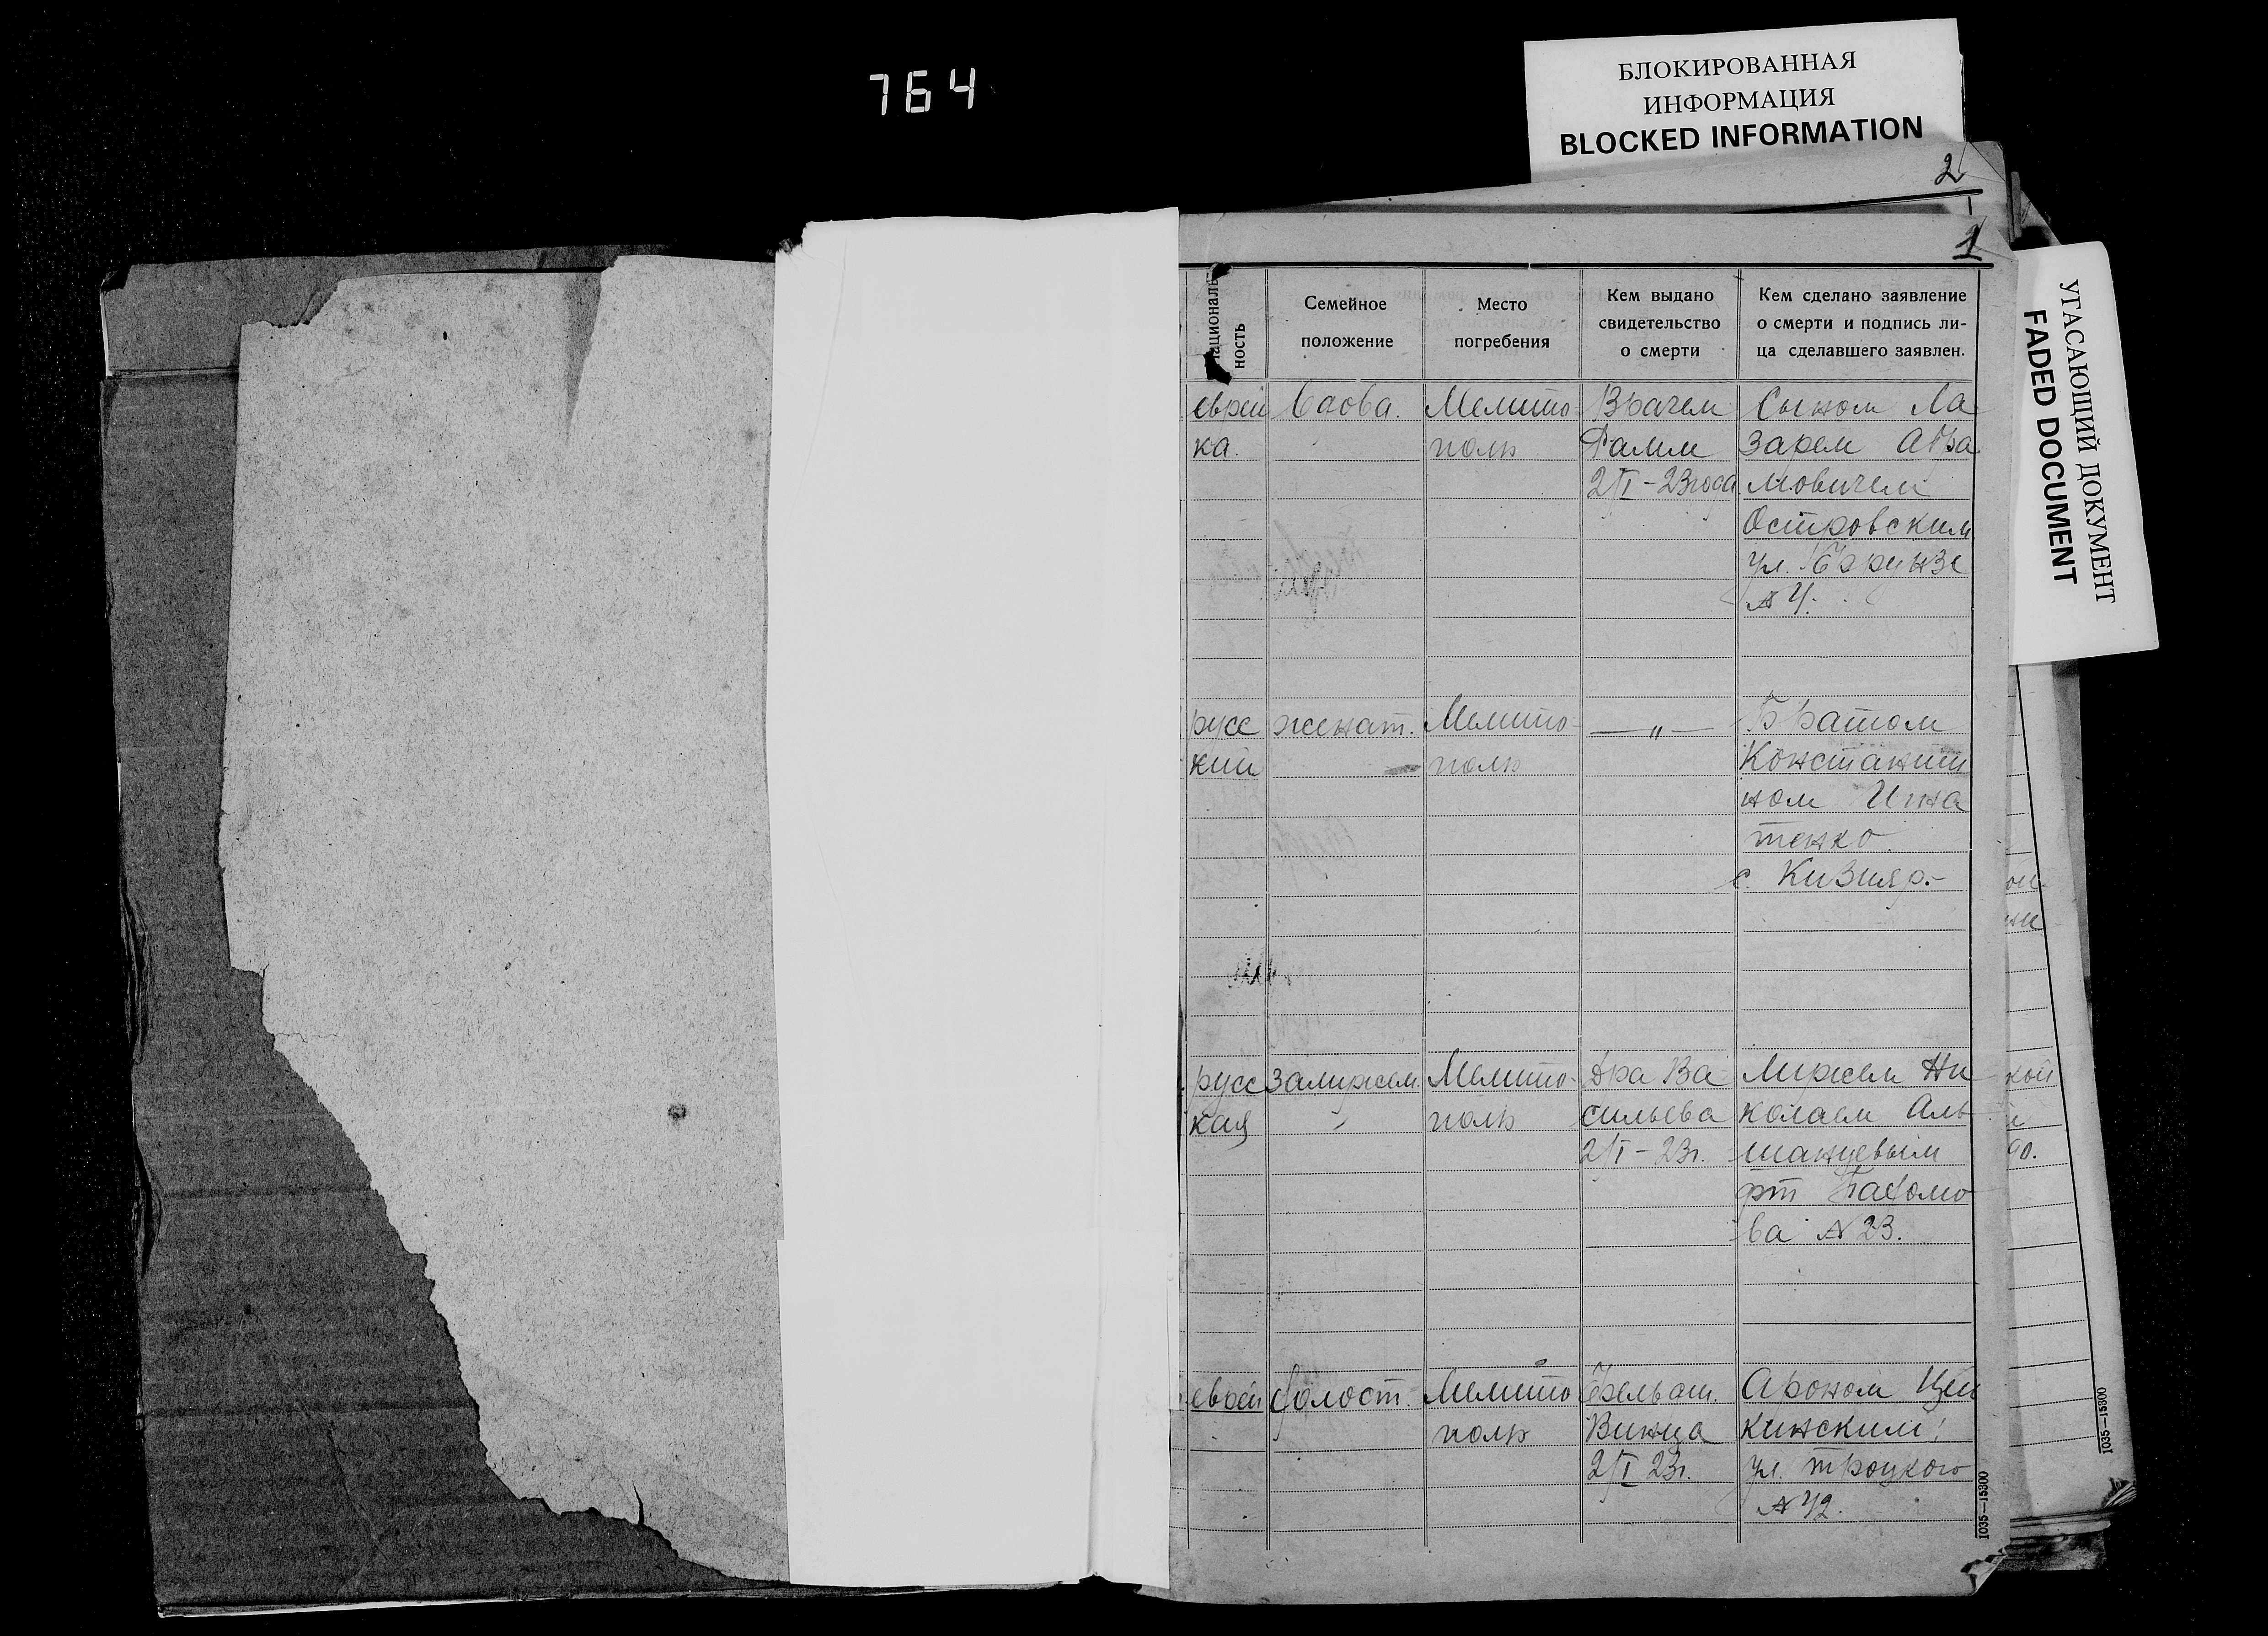 764
БЛОКИРОВАННАЯ
ИНФОРМАЦИЯ
BLOCKED INFORMATION
2
1
УГАСАЮЩИЙ ДОКУМЕНТ
FADED DOCUMENT
Националь-
ность
Семейное
положение
Место
погребения
Кем выдано
свидетельство
о смерти
Кем сделано заявление
о смерти и подпись ли-
ца сделавшего заявлен.
еврей
ка.
Вдова.
Мелито
поль
Врачем
Фамм
2/I-23 года
Сыном Ла
зарем Абра
мовичем
Островским
ул. Фрунзе
№ 4.
русс
кий
женат.
Мелито-
поль
— „ —
Братом
Константи
ном Игна
тенко.
с. Кизияр.-
русс
кая
замужем.
Мелито-
поль
Д-ра Ва
сильева
2/I-23г.
Мужем Ни
колаем Аль
шанцевым
Пахомо
ва № 23.
еврей
холост.
Мелито
поль
Фельдш.
Винца
2/I 23г.
Ароном Цей
кинским
ул. Троцкого
№ 42.
1035—15300
1035—15300